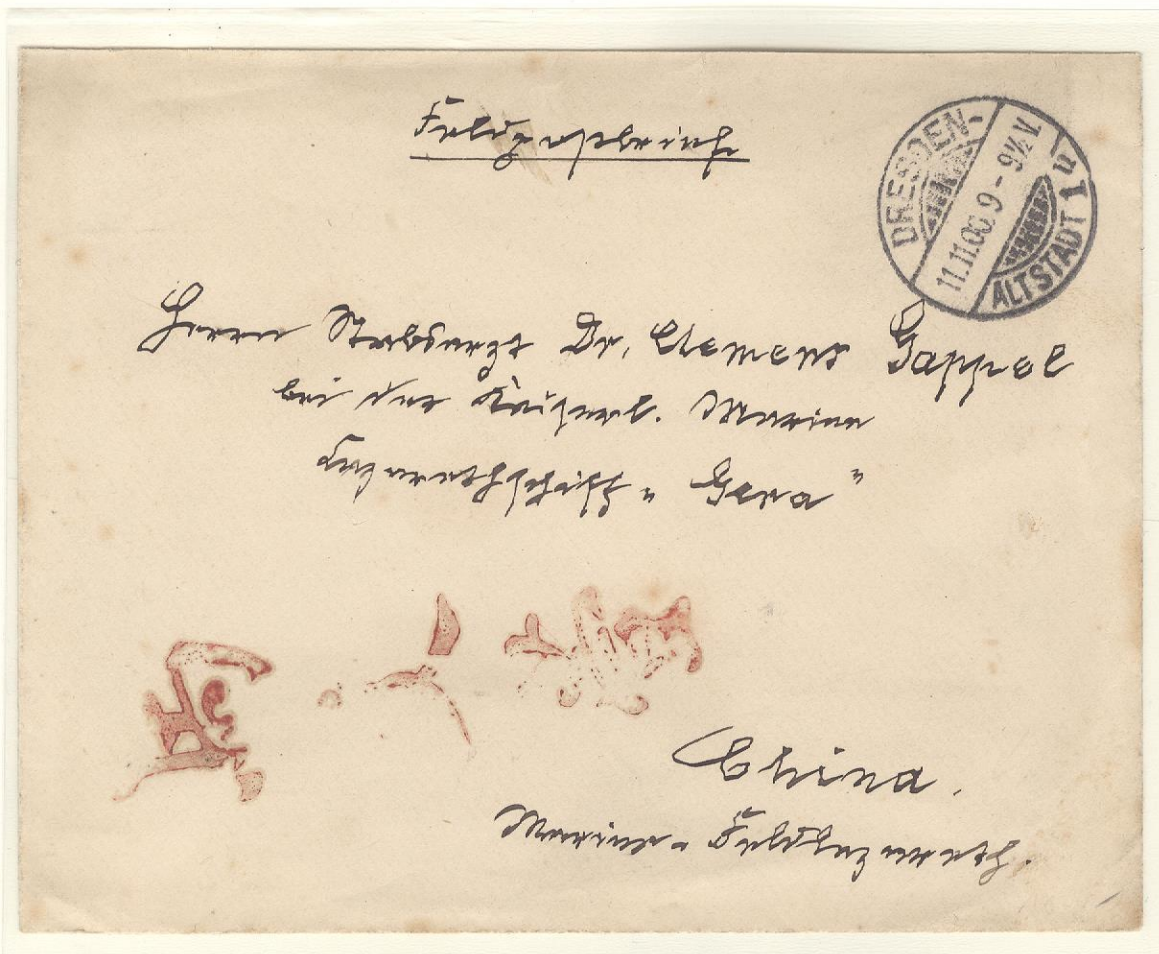 Feldpostbrief
DRESDEN-ALTSTADT 1 u
11.11.00. 9-9½ V.
Herrn Stabsarzt Dr. Clemens Gappel
bei der Kaiserl. Marine
Lazarethschiff „Gera"
China.
Marine-Feldlazareth.